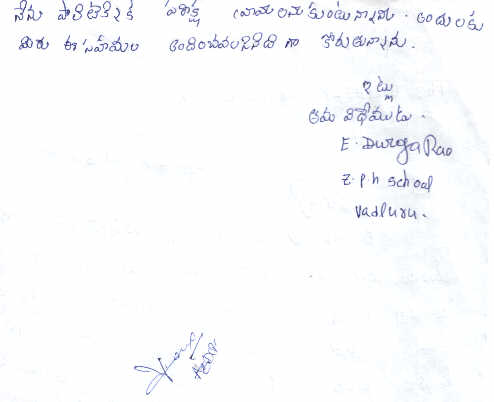 నేను పాలిటెక్నిక్ పరీక్ష వ్రాయాలనుకుంటున్నాను. అందులకు
మీరు ఈ సహాయం అందించవలసినదిగా కోరుతున్నాను.
ఇట్లు
తమ విధేయుడు.
E. Durga Rao
Z.P.H School
Vadluru.